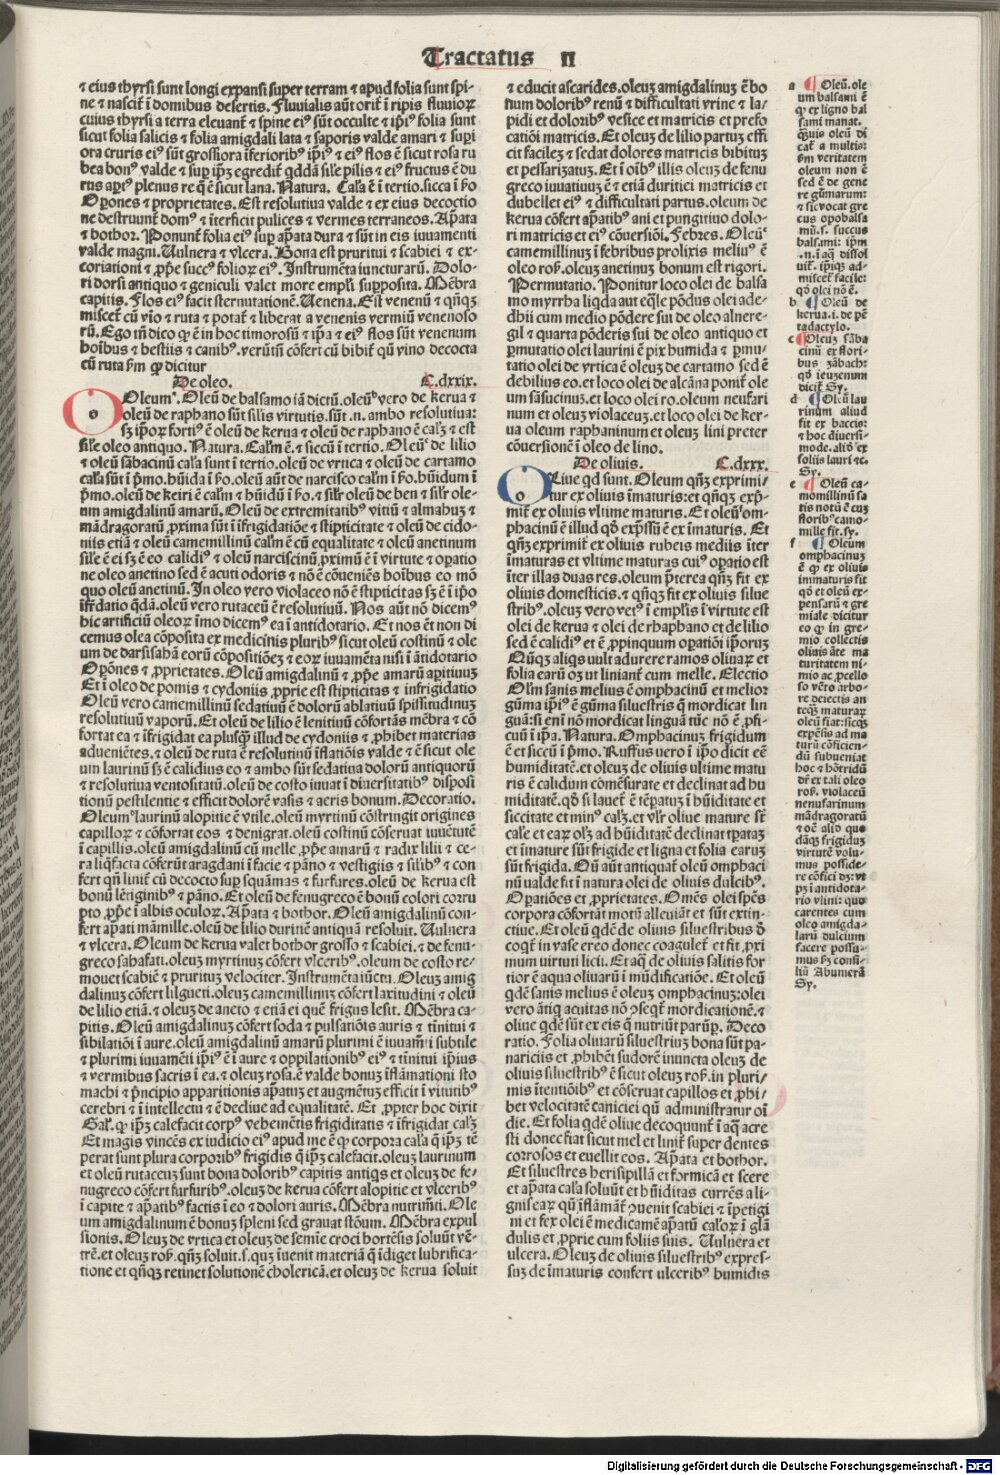 Tractatus II
⁊ eius thyrsi sunt longi expansi super terram ⁊ apud folia sunt spi-
ne ⁊ nascit̃ ĩ domibus desertis. Fluvialis aũt orit̃ ĩ ripis fluuioꝝ
cuius thyrsi a terra eleuant̃ ⁊ spine eiꝰ sũt occulte ⁊ ip̃iꝰ folia sunt
sicut folia salicis ⁊ folia amigdali lata ⁊ saporis valde amari ⁊ sup̃i
ora cruris eiꝰ sũt grossiora ĩferioribꝰ ip̃iꝰ ⁊ eiꝰ flos ẽ sicut rosa ru
bea bonꝰ valde
rus apiꝰ plenus re q̃ ẽ sicut lana. Natura. Cal̃a ẽ ĩ tertio. sicca ĩ ẜo
Op̃ones ⁊ proprietates. Est resolutiua valde ⁊ ex eius decoctio
ne destruunt̃ domꝰ ⁊ ĩterficit pulices ⁊ vermes terraneos. Ap̃ata
⁊ bothor. Ponunt̃ folia eiꝰ sup̱ ap̃ata dura ⁊ sũt in eis iuuamenti
valde magni. Uulnera ⁊ vlcera. Bona est pruritui ⁊ scabiei ⁊ ex-
coriationi ⁊ p̱p̃e succꝰ folioꝝ eiꝰ. Instrumẽta iuncturarũ. Dolo-
ri dorsi antiquo ⁊ geniculi valet more emplĩ supposita. Mẽbra
capitis. Flos eiꝰ facit sternutationẽ. Uenena. Est venenũ ⁊ qñqꝫ
miscet̃ cũ vĩo ⁊ ruta ⁊ potat̃ ⁊ liberat a venenis vermiũ venenoso
rũ. Ego tñ dico ꝙ ẽ in hoc timorosũ ⁊ ip̃a ⁊ eiꝰ flos sũt venenum
hoĩbus ⁊ bestiis ⁊ canibꝰ. verũtñ cõfert cũ bibit̃ qũ vino decocta
cũ ruta ẜm ꝙ dicitur
De oleo. C.dxxix.
Oleum. Oleũ de balsamo iã dictũ. oleũ vero de kerua ⁊
oleũ de raphano sũt sil̃is virtutis. sũt .n. ambo resolutiua:
sꝫ ip̃oꝝ fortiꝰ ẽ oleũ de kerua ⁊ oleũ de raphano ẽ cal̃ꝫ ⁊ est
sil̃e oleo antiquo. Natura. Cal̃m ẽ. ⁊ siccũ ĩ tertio. Oleũ de lilio
⁊ oleũ sãbacinũ cal̃a sunt ĩ tertio. oleũ de vrtica ⁊ oleũ de cartamo
cal̃a sũt ĩ p̃mo. hũida ĩ ẜo. oleũ aũt de narcisco cal̃m ĩ ẜo. hũidum ĩ
p̃mo. oleũ de keiri ẽ cal̃m ⁊ hũidũ ĩ ẜo. ⁊ sil̃r oleũ de ben ⁊ sil̃r ole-
um amigdalinũ amarũ. Oleũ de extremitatibꝰ vitiũ ⁊ almabuꝫ ⁊
mãdragoratũ p̱xima sũt ĩ ĩfrigidatiõe ⁊ stipticitate ⁊ oleũ de cido-
niis etiã ⁊ oleũ camemillinũ cal̃m ẽ cũ equalitate ⁊ oleũ anetinum
sil̃e ẽ ei sꝫ ẽ eo calidiꝰ ⁊ oleũ narciscinũ p̱ximũ ẽ ĩ virtute ⁊ op̃atio
ne oleo anetino sed ẽ acuti odoris ⁊ nõ ẽ cõueniẽs hoĩbus eo mõ
quo oleũ anetinũ. In oleo vero violaceo nõ ẽ stipticitas sꝫ ẽ ĩ ip̃o
ĩfr̃idatio q̃dã. oleũ vero rutaceũ ẽ resolutiuũ. Nos aũt nõ dicemꝰ
hic artificiũ oleoꝝ ĩmo dicemꝰ ea ĩ antidotario. Et nos ẽt non di
cemus olea cõposita ex medicinis pluribꝰ sicut oleũ costinũ ⁊ ole
um de darsisahã eorũ cõpositiõeꝫ ⁊ eoꝝ iuuamẽta nisi ĩ ãtidotario
Op̃ones ⁊ p̱prietates. Oleũ amigdalinũ ⁊ p̱p̃e amarũ ap̱itiuuꝫ
Et ĩ oleo de pomis ⁊ cydoniis p̱prie est stipticitas ⁊ infrigidatio
Oleũ vero camemillinũ sedatiuũ ẽ dolorũ ablatiuũ spissitudinuꝫ
resolutiuũ vaporũ. Et oleũ de lilio ẽ lenitiuũ cõfortãs mẽbra ⁊ cõ
fortat ea ⁊ ĩfrigidat ea plusq̃ illud de cydoniis ⁊ p̱hibet materias
adueniẽtes. ⁊ oleũ de ruta ẽ resolutinũ ĩflatiõis valde ⁊ ẽ sicut ole
um laurinũ sꝫ ẽ calidius eo ⁊ ambo sũt sedatiua dolorũ antiquorũ
⁊ resolutiua ventositatũ. oleũ de costo iuuat ĩ diuersitatibꝰ disposi
tionũ pestilentie ⁊ efficit dolorẽ vasis ⁊ aeris bonum. Decoratio.
Oleum laurinũ alopitie ẽ vtile. oleũ myrtinũ cõstringit origines
capilloꝝ ⁊ cõfortat eos ⁊ denigrat. oleũ costinũ cõseruat iuuẽtutẽ
ĩ capillis. oleũ amigdalinũ cũ melle p̱p̃e amarũ ⁊ radix lilii ⁊ ce-
ra liq̃facta cõferũt aragdani ĩ facie ⁊ pãno ⁊ vestigiis ⁊ sil̃ibꝰ ⁊ con
fert qñ linit̃ cũ decoctio sup̱ squãmas ⁊ furfures. oleũ de kerua est
bonũ lẽtiginibꝰ ⁊ pãno. Et oleũ de fenugreco ẽ bonũ colori corru
pto p̱p̃e ĩ albis oculoꝝ. Ap̃ata ⁊ bothor. Oleũ amigdalinũ con-
fert ap̃ati mãmille. oleũ de lilio duriciẽ antiquã resoluit. Uulnera
⁊ vlcera. Oleum de kerua valet bothor grosso ⁊ scabiei. ⁊ de fenu-
greco sahafati. oleuꝫ myrtinuꝫ cõfert vlceribꝰ. oleum de costo re-
mouet scabiẽ ⁊ pruritũ velociter. Instrumẽta iũctu. Oleuꝫ amig
dalinuꝫ cõfert lilgueti. oleuꝫ camemillinuꝫ cõfert laxitudini ⁊ oleũ
de lilio etiã. ⁊ oleuꝫ de aneto ⁊ etiã ei quẽ frigus lesit. Mẽbra ca-
pitis. Oleũ amigdalinuꝫ cõfert soda ⁊ pulsatiõis auris ⁊ tĩnitui ⁊
sibilatiõi ĩ aure. oleũ amigdalinũ amarũ plurimi ẽ iuuam̃i ĩ subtile
⁊ plurimi iuuamẽti ip̃iꝰ ẽ ĩ aure ⁊ oppilationibꝰ eiꝰ ⁊ tĩnitui ip̃ius
⁊ vermibus sacris ĩ ea. ⁊ oleuꝫ rosa. ẽ valde bonuꝫ ĩflamationi sto
machi ⁊ p̃ncipio apparitionis ap̃atus ⁊ augmẽtuꝫ efficit ĩ v̓tutibꝰ
cerebri ⁊ ĩ intellectu ⁊ ẽ decliue ad equalitatẽ. Et p̱pter hoc dixit
Gal̃. ꝙ ip̃ꝫ calefacit corpꝰ vehemẽtis frigiditatis ⁊ ĩfrigidat cal̃ꝫ
Et magis vincẽs ex iudicio eiꝰ apud me ẽ ꝙ corpora cal̃a q̃ ip̃ꝫ tẽ
perat sunt plura corporibꝰ frigidis q̃ ip̃ꝫ calefacit. oleuꝫ laurinum
et oleũ rutaceuꝫ sunt bona doloribꝰ capitis antiqs et oleuꝫ de fe-
nugreco cõfert furfuribꝰ. oleuꝫ de kerua cõfert alopitie et vlceribꝰ
ĩ capite ⁊ ap̃atibꝰ factis ĩ eo ⁊ dolori auris. Mẽbra nutrim̃ti. Ole
um amigdalinum ẽ bonuꝫ spleni sed grauat stõum. Mẽbra expul
sionis. Oleuꝫ de vrtica et oleuꝫ de semĩe croci hortẽsis soluũt vẽ-
trẽ. et oleuꝫ roẜ. qñꝫ soluit .s. quꝫ ĩuenit materiã q̃ ĩdiget lubrifica-
tione et qñqꝫ retinet solutionẽ cholericã. et oleuꝫ de kerua soluit
⁊ educit ascarides. oleuꝫ amigdalinuꝫ ẽ bo
num doloribꝰ renũ ⁊ difficultati vrine ⁊ la-
pidi et doloribꝰ vesice et matricis et prefo
catiõi matricis. Et oleuꝫ de lilio partuꝫ effi
cit facileꝫ ⁊ sedat dolores matricis bibituꝫ
et pessarizatuꝫ. Et ĩ oĩbꝰ illis oleuꝫ de fenu
greco iuuatiuuꝫ ẽ ⁊ etiã duritiei matricis et
dubellet eiꝰ ⁊ difficultati partus. oleum de
kerua cõfert ap̃atibꝰ ani et pungitiuo dolo-
ri matricis et eiꝰ cõuersiõi. Febres. Oleũ
camemillinuꝫ ĩ febribus prolixis meliuꝰ ẽ
oleo roẜ. oleuꝫ anetinuꝫ bonum est rigori.
Permutatio. Ponitur loco olei de balsa
mo myrrha liq̃da aut eq̃le põdus olei ade-
dhii cum medio põdere sui de oleo alnere-
gil ⁊ quarta põderis sui de oleo antiquo et
p̱mutatio olei laurini ẽ pix humida ⁊ p̱mu-
tatio olei de vrtica ẽ oleuꝫ de cartamo sed ẽ
debilius eo. et loco olei de alcãna ponit̃ ole
um sãsucinuꝫ. et loco olei ro. oleum neufari
num et oleuꝫ violaceuꝫ. et loco olei de ker-
ua oleum raphaninum et oleuꝫ lini preter
cõuersionẽ ĩ oleo de lino.
De oliuis. C.dxxx.
Oliue qd sunt. Oleum qñꝫ exprimi-
tur ex oliuis ĩmaturis: et qñqꝫ exp̃-
mit̃ ex oliuis vltime maturis. Et oleũ om-
phacinũ ẽ illud qď exp̃ssũ ẽ ex ĩmaturis. Et
qñꝫ exprimit̃ ex oliuis rubeis mediis ĩter
ĩmaturas et vltime maturas cuiꝰ op̃atio est
ĩter illas duas res. oleum p̃terea qñꝫ fit ex
oliuis domesticis. ⁊ qñqꝫ fit ex oliuis silue
stribꝰ. oleuꝫ vero vetꝰ ĩ emplĩs ĩ virtute est
olei de kerua ⁊ olei de rhaphano et de lilio
sed ẽ calidiꝰ et ẽ p̱pinquum op̃atiõi ip̃oruꝫ
Qñqꝫ aliqs vult adurere ramos oliuaꝝ et
folia earũ oꝫ ut liniant̃ cum melle. Electio
Ol̃m sanis melius ẽ omphacinũ et melior
gũma ip̃iꝰ ẽ gũma siluestris q̃ mordicat lin
guã: si enĩ nõ mordicat linguã tũc nõ ẽ p̱fi-
cuũ ĩ ip̃a. Natura. Omphacinuꝫ frigidum
ẽ et siccũ ĩ p̃mo. Ruffus vero ĩ ip̃o dicit eẽ
humiditatẽ. et oleuꝫ de oliuis ultime matu
ris ẽ calidum cõmẽsurate et declinat ad hu
miditatẽ. qď si lauet̃ ẽ tẽp̱atuꝫ ĩ hũiditate et
siccitate et minꝰ cal̃ꝫ. et vl̃r oliue mature sũt
cal̃e et eaꝝ ol̃ꝫ ad hũiditatẽ declinat tp̱ataꝫ
et ĩmature sũt frigide et ligna et folia earuꝫ
sũt frigida. Qñ aũt antiquat̃ oleũ omphaci
nũ valde fit ĩ natura olei de oliuis dulcibꝰ.
Op̃atiões et p̱prietates. Oẽs olei sp̃es
corpora cõfortãt motũ alleuiãt et sũt extin-
ctiue. Et oleũ q̃dẽ de oliuis siluestribus ď
coqt̃ in vase ereo donec coagulet̃ et fit p̱xi
mum virtuti licii. Et aq̃ de oliuis salitis for
tior ẽ aqua oliuarũ ĩ mũdificatiõe. Et oleũ
q̃dẽ sanis melius ẽ oleuꝫ omphacinuꝫ: olei
vero ãtiq̃ acuitas nõ ↄseqt̃ mordicationẽ. ⁊
oliue q̃dẽ sũt ex eis q̃ nutriũt parũp̱. Deco
ratio. Folia oliuarũ siluestriuꝫ bona sũt pa-
nariciis et p̱hibẽt sudorẽ inuncta oleuꝫ de
oliuis siluestribꝰ ẽ sicut oleuꝫ roẜ. in pluri-
mis ĩtentiõibꝰ et cõseruat capillos et p̱hi-
bet velocitatẽ caniciei qũ administratur oĩ
die. Et folia q̃dẽ oliue decoquunt̃ ĩ aq̃ acre
sti donec fiat sicut mel et linit̃ super dentes
corrosos et euellit eos. Ap̃ata et bothor.
Et siluestres herisipillã et formicã et scere
et ap̃ata cal̃a soluũt et hũiditas currẽs a li-
gnis eaꝝ qũ ĩflamãt̃ ↄuenit scabiei ⁊ ĩpetigi
ni et fex olei ẽ medicamẽ ap̃atũ cal̃oꝝ ĩ glã
dulis et p̱prie cum foliis suis. Uulnera et
ulcera. Oleuꝫ de oliuis siluestribꝰ expres-
suꝫ de ĩmaturis confert ulceribꝰ humidis
a ¶ Oleũ. ole
um balsami ẽ
ꝙ ex ligno bal
sami manat.
q̃uis oleũ di
cat̃ a multis:
ẜm veritatem
oleum non ẽ
sed ẽ de gene
re gũmarum:
⁊ sic vocat gre
cus opobalsa
mũ .s. succus
balsami: ip̃m
.n. ĩ aq̃ dissol
uit̃. ip̃iqꝫ ad-
miscet̃ facile:
qď olei nõ ẽ.
b ¶ Oleũ de
kerua .i. de pẽ
tadactylo.
c ¶ Oleuꝫ sãba
cinũ ex flori
bus zãbach:
qď ieuꝫenum
dicit̃ Sy.
d ¶ Oleũ lau
rinum aliud
fit ex baccis:
⁊ hoc diuersi-
mode. aliď ex
foliis lauri ⁊c.
Sy.
e ¶ Oleũ ca-
momillinũ sa
tis notũ ẽ cuꝫ
floribꝰ camo-
mille fit. sy.
f ¶ Oleum
omphacinuꝫ
ẽ ꝙ ex oliuis
immaturis fit
qď et oleũ ex-
pensarũ ⁊ gre
miale dicitur
eo ꝙ in gre-
mio collectis
oliuis ãte ma
turitatem ni-
mio ac p̱cello
so vẽto arbo-
re deiectis an
teqꝫ maturaꝝ
oleũ fiat: sicqꝫ
expẽsis ad ma
turũ cõficien-
dũ subueniat
hoc ⁊ hõtridũ
dr̃ ex tali oleo
roẜ. violaceũ
nenufarinum
mãdragoratũ
⁊ oẽ aliď quo
dãqꝫ frigiduꝫ
virtutẽ volu-
mus posside-
re cõfici dꝫ: vt
pꝫ ĩ antidota-
rio vlini: quo
carentes cum
oleo amigda-
larũ dulcium
facere possu-
mus ẜꝫ consi-
liũ Abumerã
Sy.
Digitalisierung gefördert durch die Deutsche Forschungsgemeinschaft - DFG